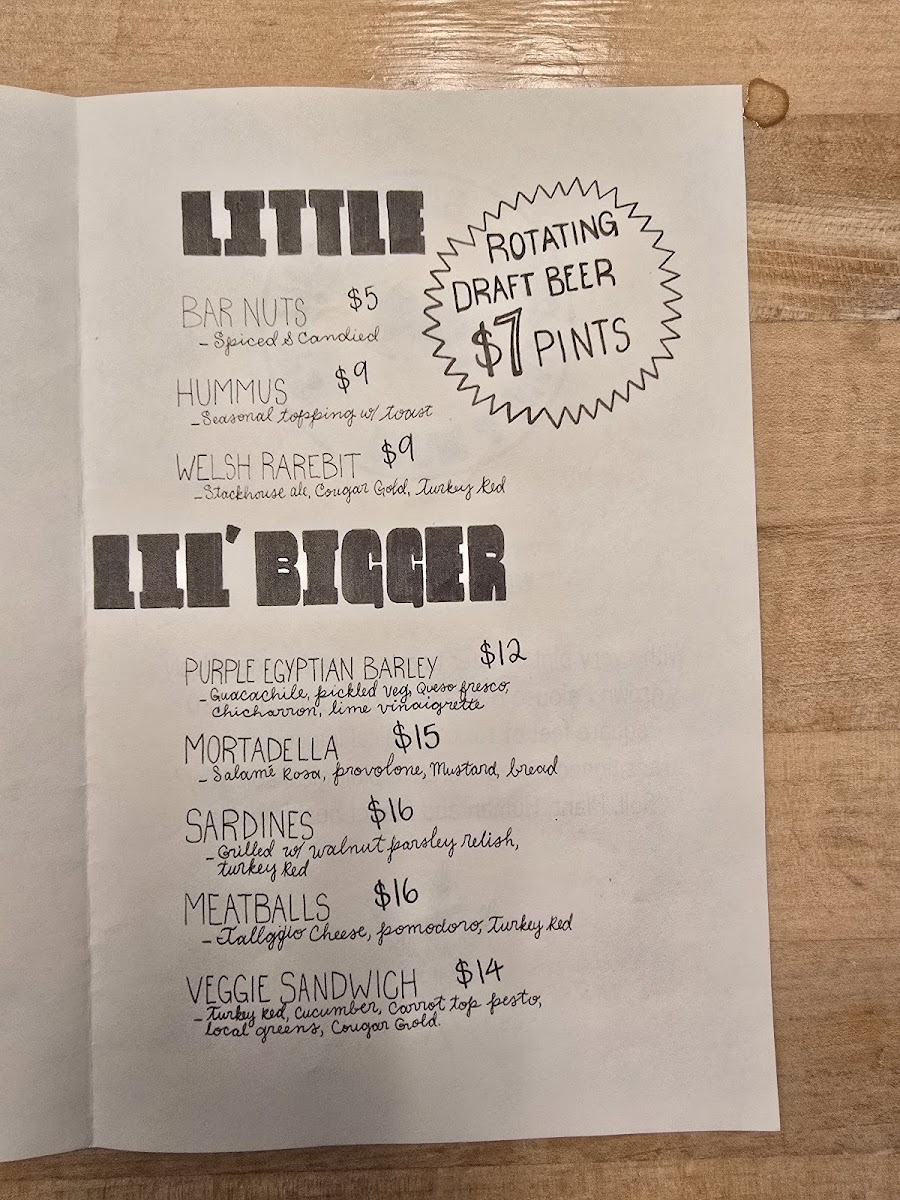 LITTLE
BAR NUTS $5
- Spiced & Candied
HUMMUS $9
- Seasonal topping w/ toast
WELSH RAREBIT $9
- Stackhouse ale, Cougar Gold, Turkey Red
ROTATING
DRAFT BEER
$7 PINTS
LIL' BIGGER
PURPLE EGYPTIAN BARLEY $12
- Guacachile, pickled veg, Queso fresco,
chicharron, lime vinaigrette
MORTADELLA $15
- Salamé Rosa, provolone, Mustard, bread
SARDINES $16
- Grilled w/ walnut parsley relish,
turkey Red
MEATBALLS $16
- Tallggio Cheese, pomodoro, Turkey Red
VEGGIE SANDWICH $14
- Turkey Red, Cucumber, Carrot top pesto,
local greens, Cougar Gold.